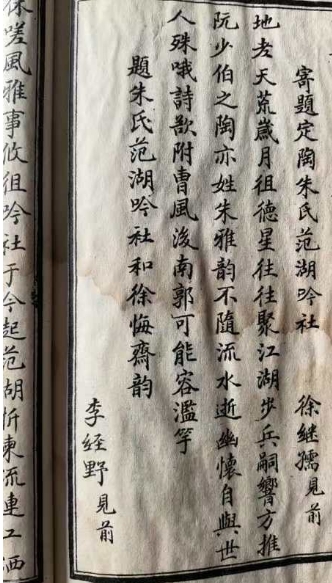 寄題定陶朱氏范湖吟社 徐継孺見前
地老天荒歲月徂德星往往聚江湖步兵嗣響方推
阮少伯之陶亦姓朱雅韵不隨流水逝幽懷自與世
人殊哦詩欲附曹風後南郭可能容濫竽
題朱氏范湖吟社和徐悔齋韵
李経野見前
嗟風雅事攸徂吟社于今起范胡忻東流連工洒